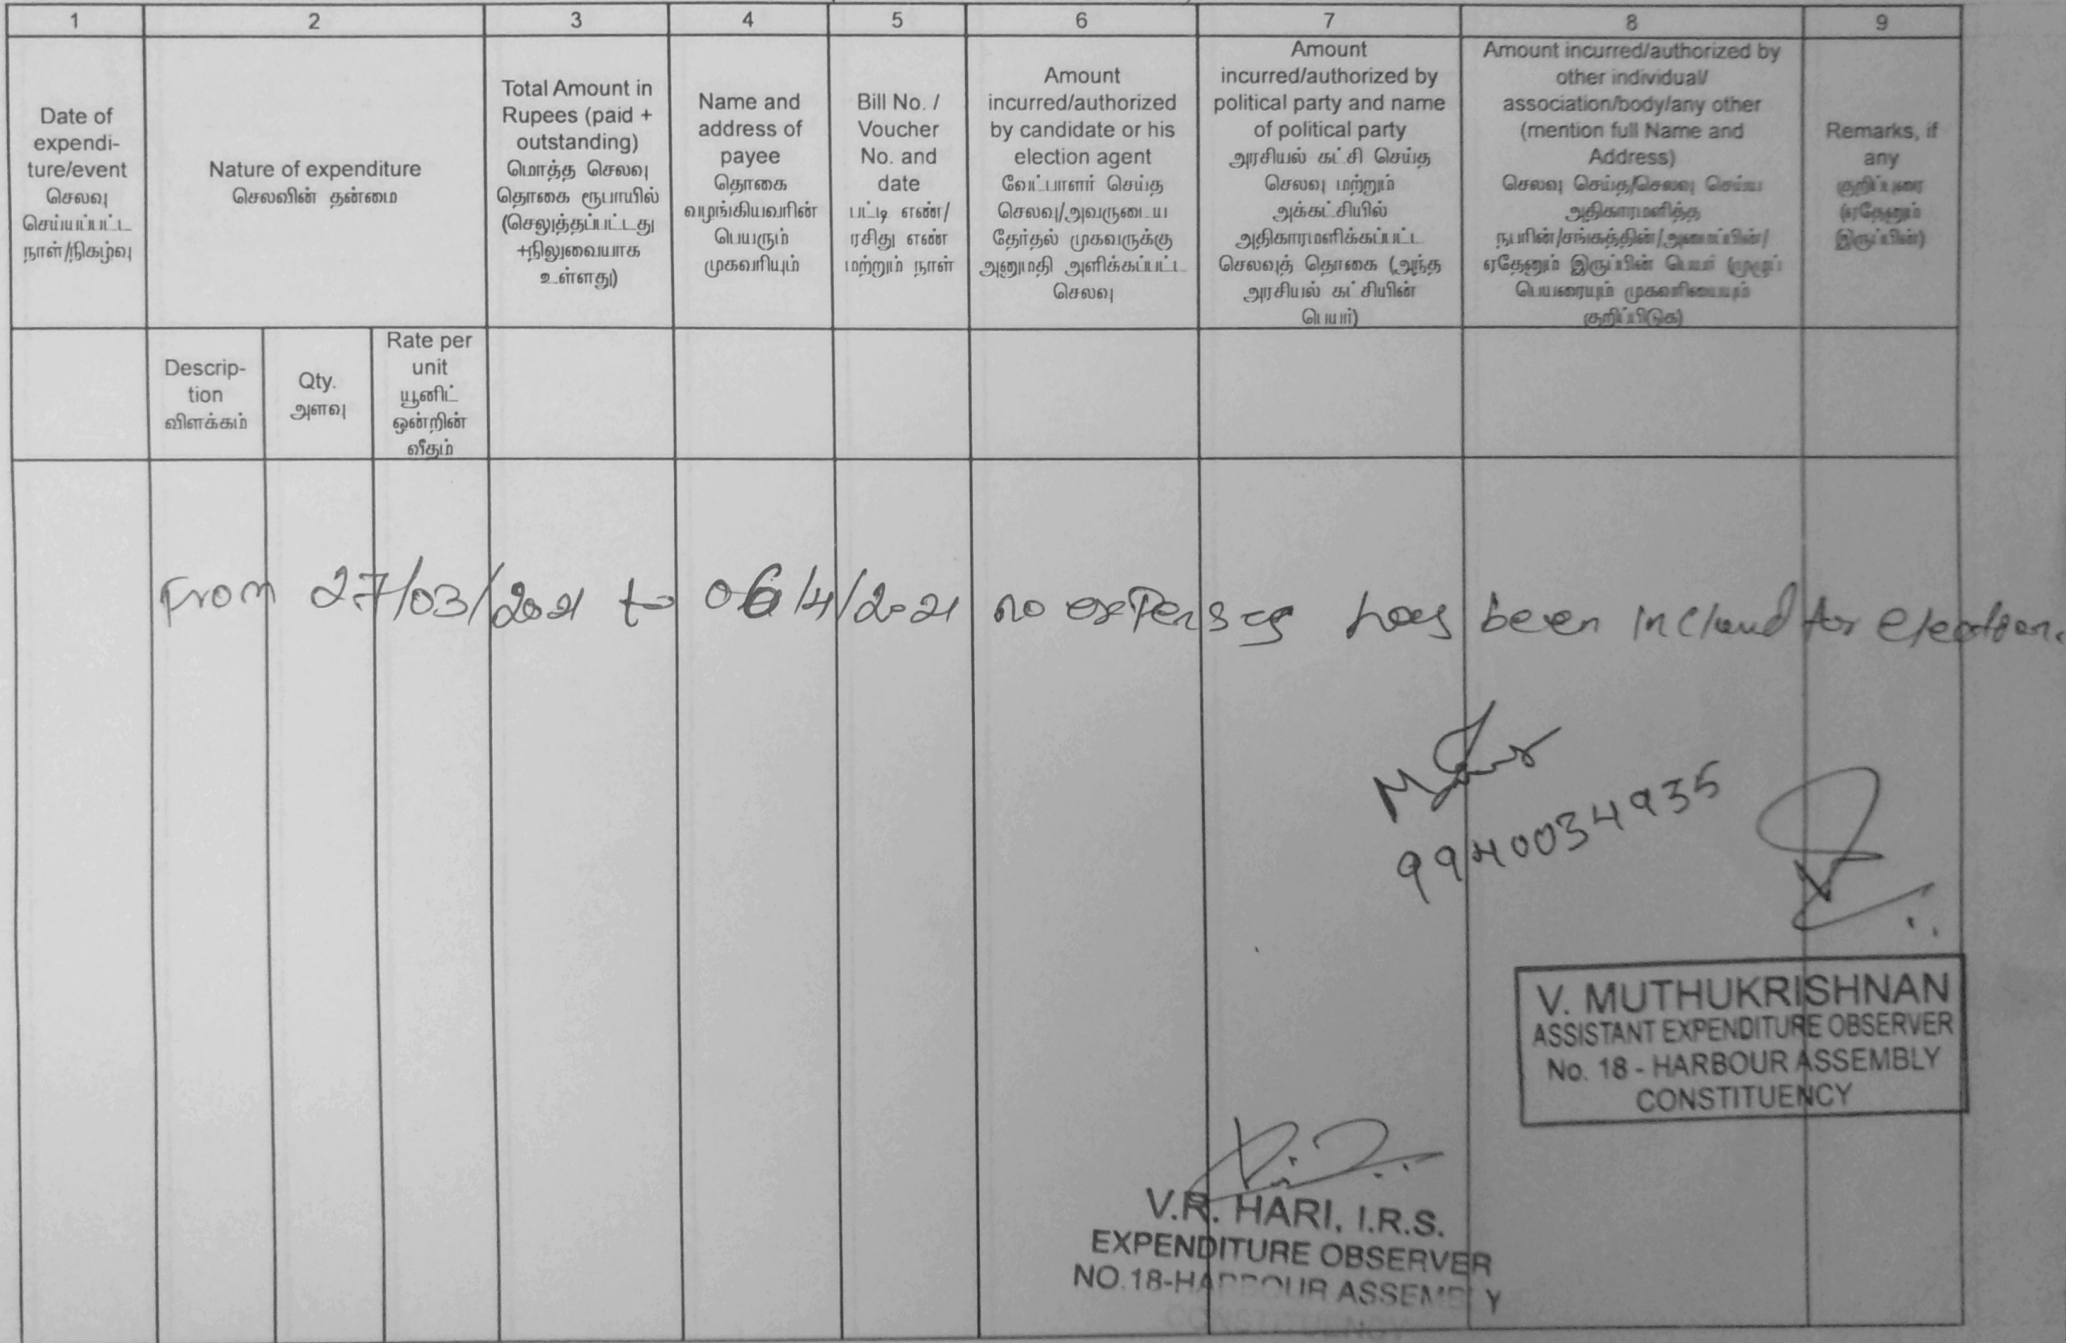 1 2 3 4 5 6 7 8 9
Date of
expendi-
ture/event
செலவு
செய்யப்பட்ட
நாள்/நிகழ்வு
Nature of expenditure
செலவின் தன்மை
Total Amount in
Rupees (paid +
outstanding)
மொத்த செலவு
தொகை ரூபாயில்
(செலுத்தப்பட்டது
+நிலுவையாக
உள்ளது)
Name and
address of
payee
தொகை
வழங்கியவரின்
பெயரும்
முகவரியும்
Bill No. /
Voucher
No. and
date
பட்டி எண்/
ரசிது எண்
மற்றும் நாள்
Amount
incurred/authorized
by candidate or his
election agent
வேட்பாளர் செய்த
செலவு/அவருடைய
தேர்தல் முகவருக்கு
அனுமதி அளிக்கப்பட்ட
செலவு
Amount
incurred/authorized by
political party and name
of political party
அரசியல் கட்சி செய்த
செலவு மற்றும்
அக்கட்சியில்
அதிகாரமளிக்கப்பட்ட
செலவுத் தொகை (அந்த
அரசியல் கட்சியின்
பெயர்)
Amount incurred/authorized by
other individual/
association/body/any other
(mention full Name and
Address)
செலவு செய்த/செலவு செய்ய
அதிகாரமளித்த
நபரின்/சங்கத்தின்/அமைப்பின்/
ஏதேனும் இருப்பின் பெயர் (முழுப்
பெயரையும் முகவரியையும்
குறிப்பிடுக)
Remarks, if
any
குறிப்புரை
(ஏதேனும்
இருப்பின்)
Descrip-
tion
விளக்கம்
Qty.
அளவு
Rate per
unit
யூனிட்
ஒன்றின்
வீதம்
From 27/03/2021 to 06/4/2021 no expenses has been for election.
9940034935
V. MUTHUKRISHNAN
ASSISTANT EXPENDITURE OBSERVER
No. 18 - HARBOUR ASSEMBLY
CONSTITUENCY
V.R. HARI, I.R.S.
EXPENDITURE OBSERVER
NO.18-HARBOUR ASSEMBLY
CONSTITUENCY